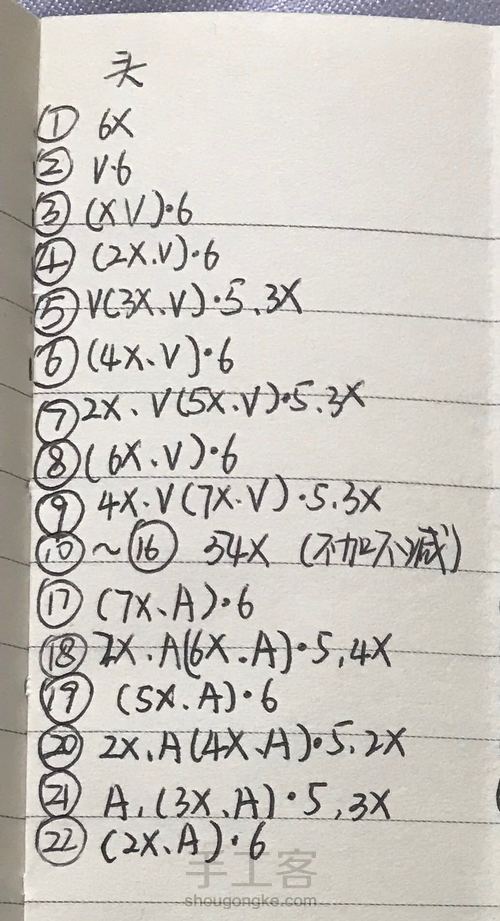 头
① 6X
② V·6
③ (XV)·6
④ (2X.V)·6
⑤ V(3X.V)·5.3X
⑥ (4X.V)·6
⑦ 2X.V(5X.V)·5.3X
⑧ (6X.V)·6
⑨ 4X.V(7X.V)·5.3X
⑩~⑯ 54X (不加不减)
⑰ (7X.A)·6
⑱ 2X.A(6X.A)·5,4X
⑲ (5X.A)·6
⑳ 2X.A(4X.A)·5.2X
㉑ A,(3X.A)·5,3X
㉒ (2X.A)·6
手工客
shougongke.com